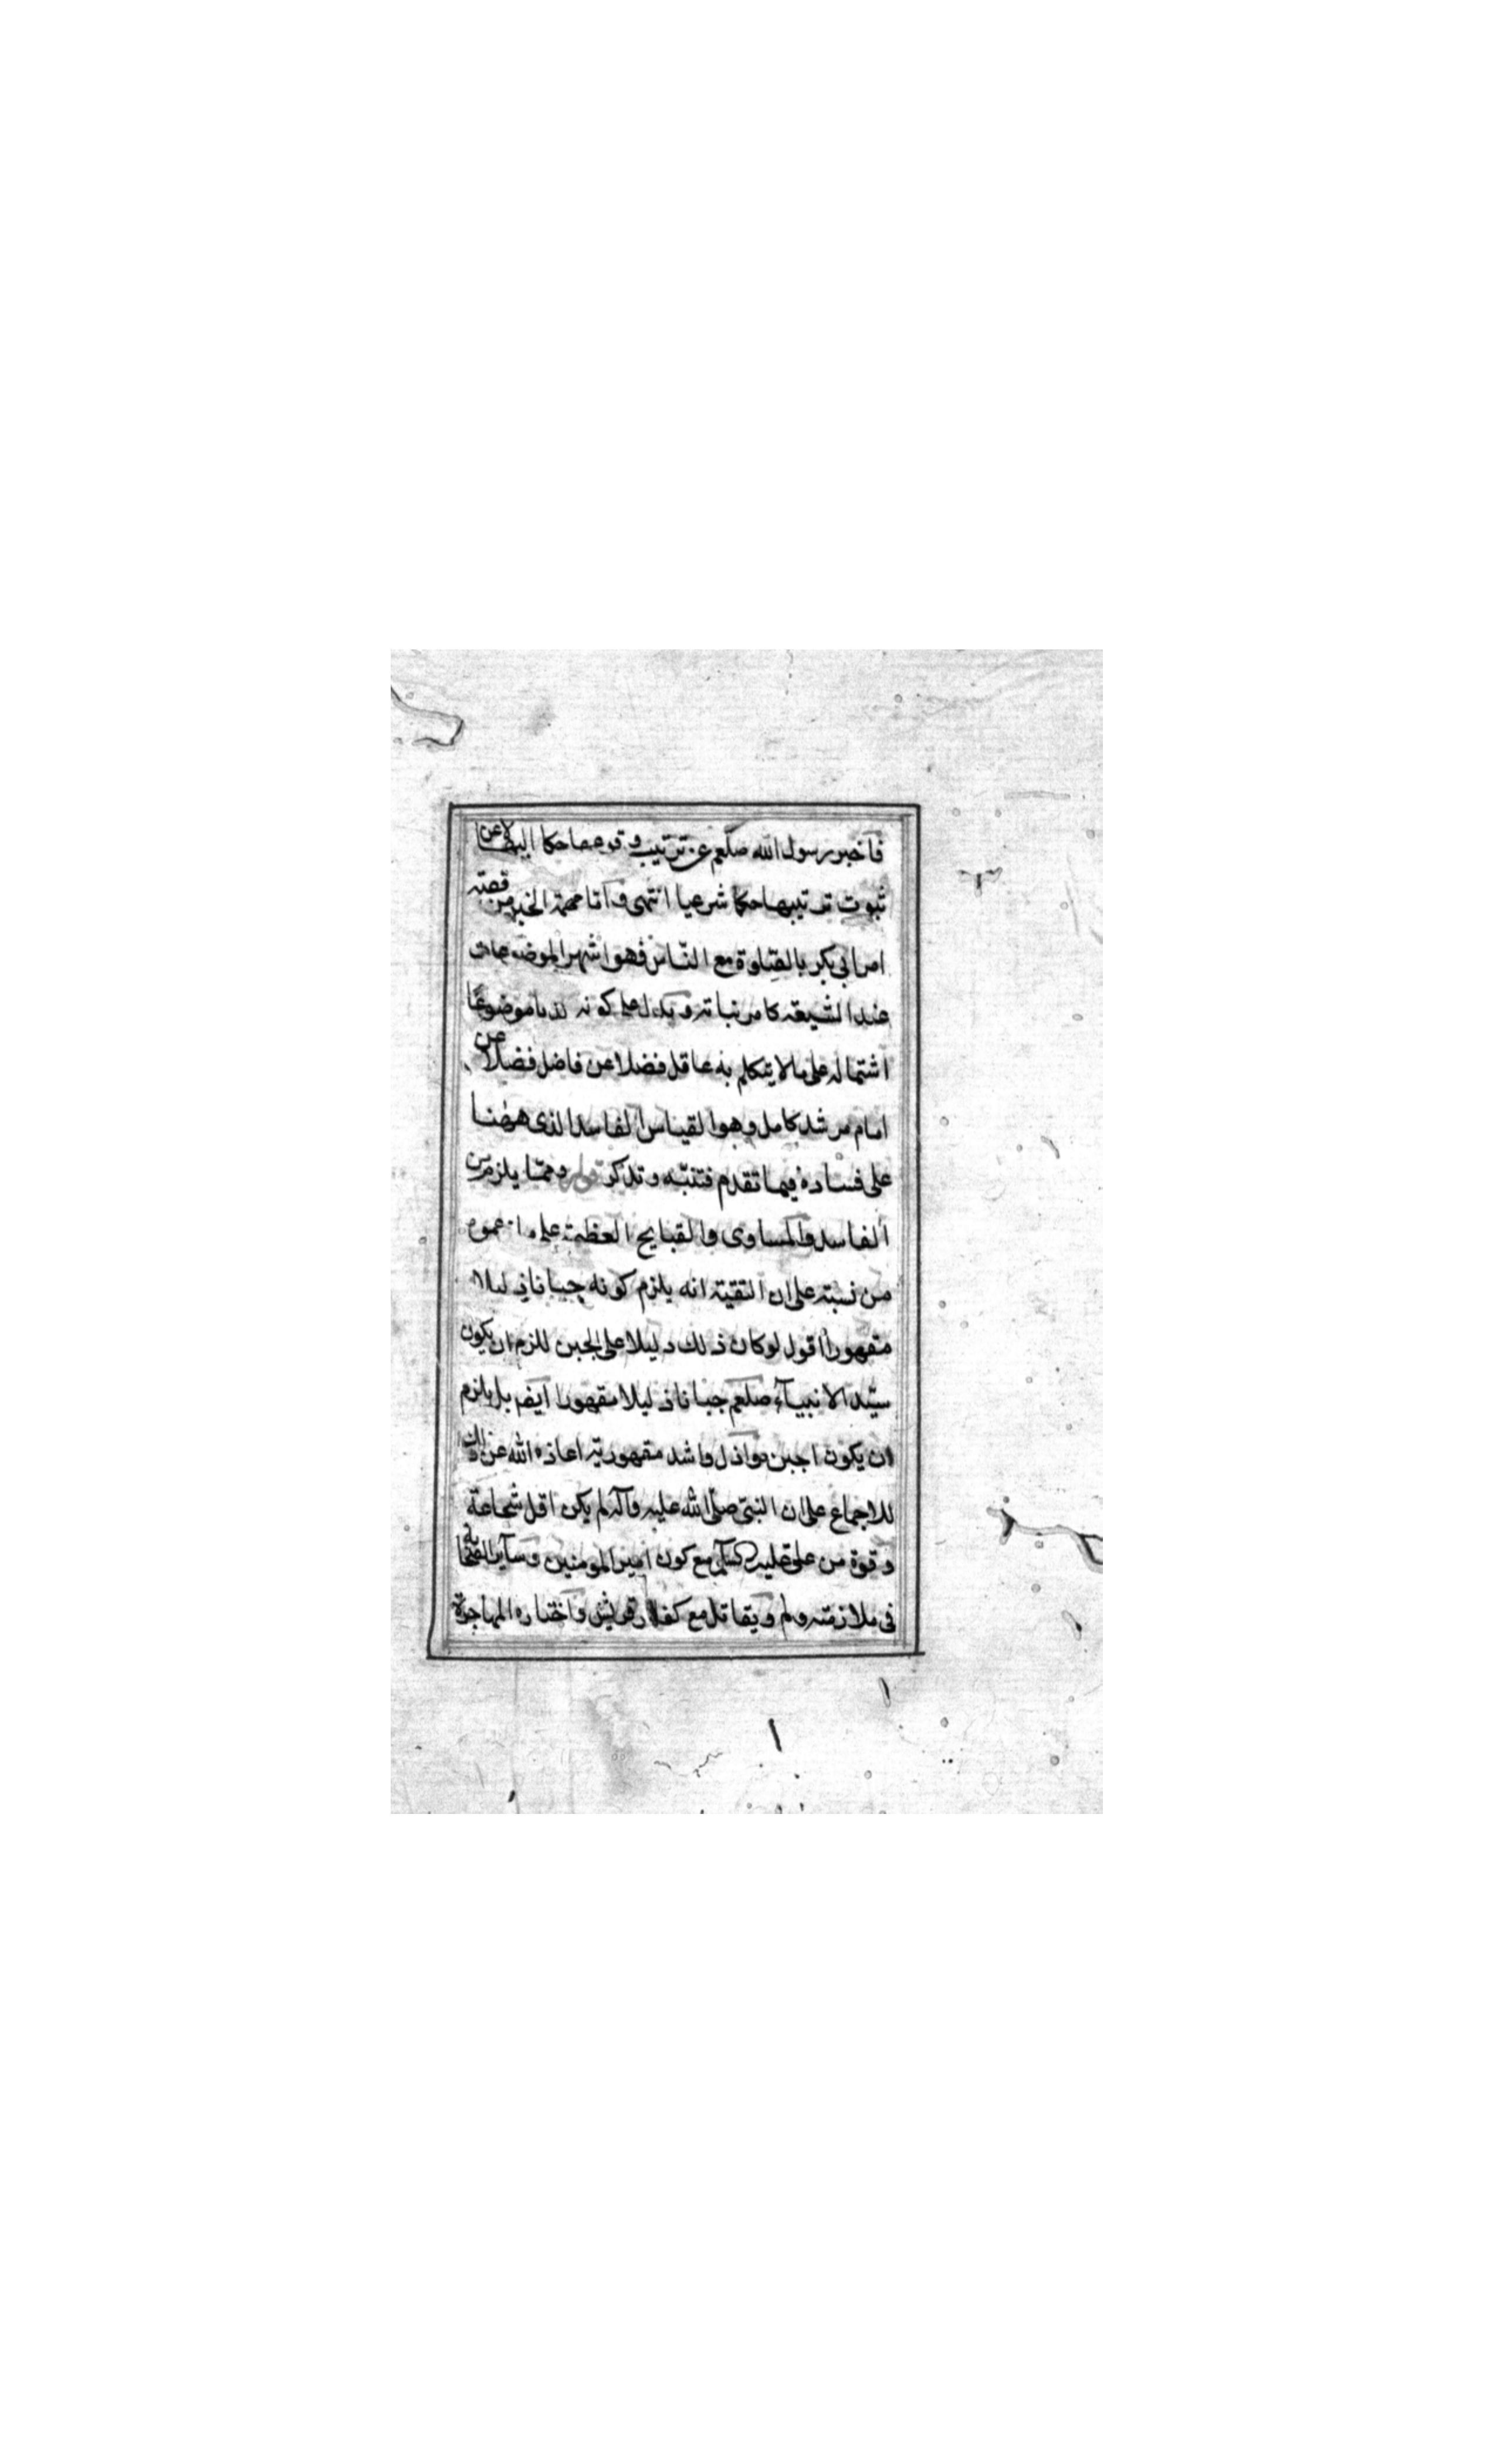 فاخبر رسول الله صلعم عن ترتيب وقوعهما حكاية لا عن
ثبوت ترتيبها حكما شرعيا انتهى واما تتمة الخبر من قصة
امر ابي بكر بالصلوة مع الناس فهو اشهر الموضوعات
عند الشيعة كامر نباته ويدل على كونه كذبا موضوعا
اشتماله على ما لا يتكلم به عاقل فضلا عن فاضل فضلا عن
امام مرشد كامل وهو القياس الفاسد الذي هھنا
على فساده فيما تقدم فتنبه وتذكر قوله ومما يلزم من
الفاسد والمساوى والقبايح العظيمة على ما زعموه
من نسبته على ان التقية انه يلزم كونه جبانا ذليلا
مقهورا اقول لو كان ذلك دليلا على الجبن للزم ان يكون
سيد الانبيآء صلعم جبانا ذليلا مقهورا ايضم بل يلزم
ان يكون اجبن واذل واشد مقهورية اعاذه الله عن ذلك
للاجماع على ان النبي صلى الله عليه وآله لم يكن اقل شجاعة
وقوة من علي عليه السلم مع كون امير المومنين وسآير الصحابة
في ملازمته ولم ويقاتل مع كفار قريش واختاره المهاجرة